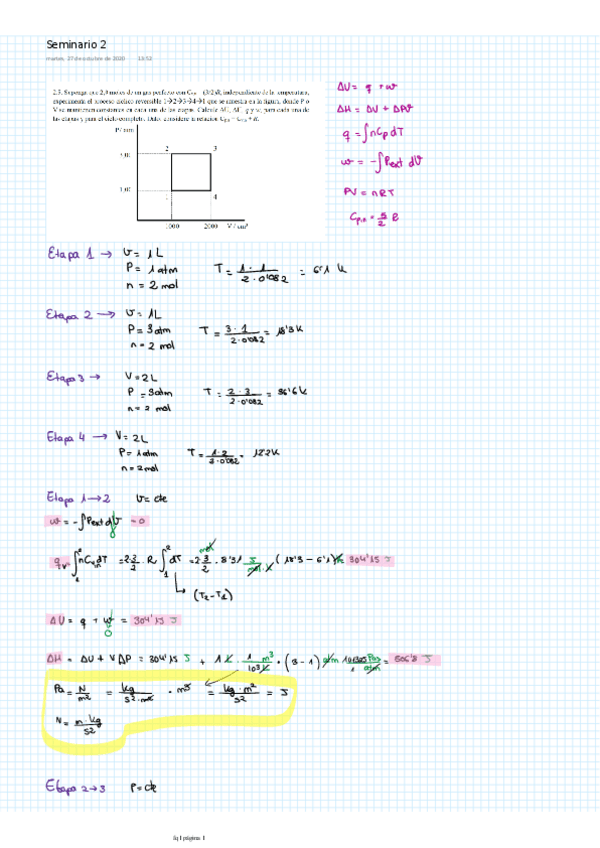 Seminario 2
martes, 27 de octubre de 2020 13:52
2.5. Suponga que 2,0 moles de un gas perfecto con (3/2)R, independiente de la temperatura,
experimenta el proceso cíclico reversible 1→2→3→4→1 que se muestra en la figura, donde P o
V se mantienen constantes en cada una de las etapas. Calcule ΔU, ΔH, q y w, para cada una de
las etapas y para el ciclo completo. Dato: considere la relación
P / atm
3,00
2
3
1,00
1
4
1000
2000
V / cm³
ΔU = q + w
ΔH = ΔU + ΔPV
q = ∫nCpdT
w = -∫Pext dV
PV = nRT
Cp,n = 5/2 R
Etapa 1 → V = 1L
P = 1 atm
n = 2 mol
T = 1·1 / 2·0'082 = 6'1 K
Etapa 2 → V = 1L
P = 3 atm
n = 2 mol
T = 3·1 / 2·0'082 = 18'3 K
Etapa 3 → V = 2L
P = 3 atm
n = 2 mol
T = 2·3 / 2·0'082 = 36'6 K
Etapa 4 → V = 2L
P = 1 atm
n = 2 mol
T = 1·2 / 2·0'082 = 12'2 K
Etapa 1→2 V = cte
w = -∫Pext dV = 0
0
(T2 - T1)
ΔU = q + w = 304'15 J
0
ΔH = ΔU + VΔP = 304'15 J + 1 L · 1 m³ / 10³ L · (3 - 1) atm 101325 Pa / 1 atm = 506'8 J
Pa = N/m²
= kg · m² / s² = J
N = m·kg / s²
Etapa 2→3 P = cte
fq I página 1